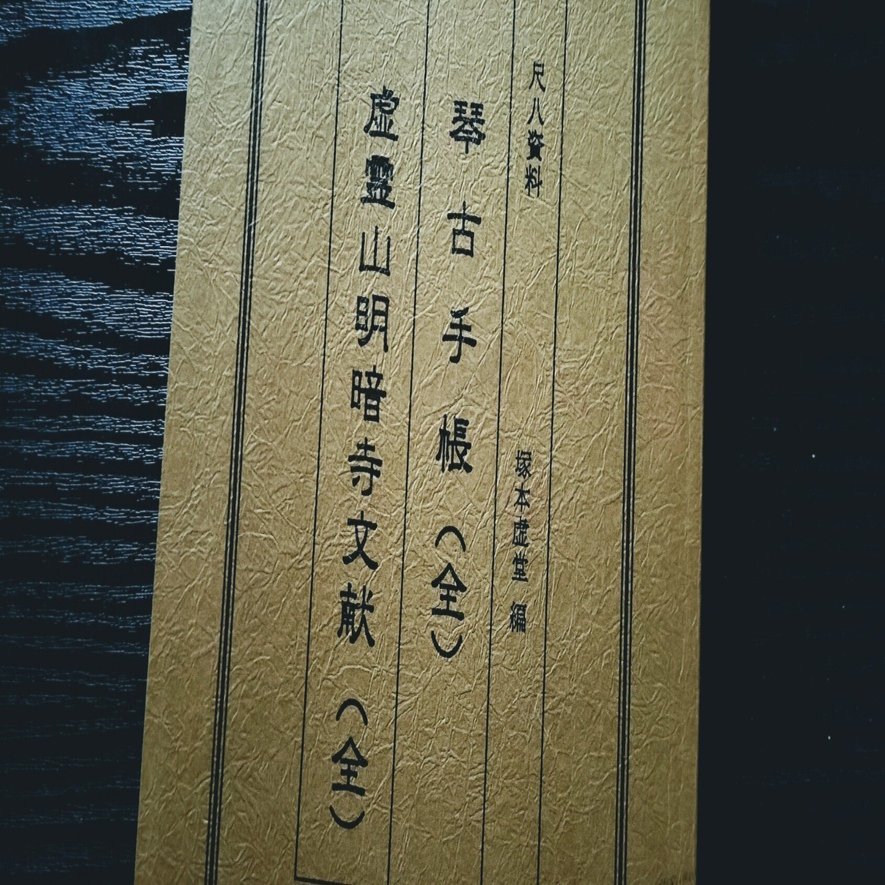 尺八資料
塚本虚堂 編
琴古手帳（全）
虚霊山明暗寺文献（全）